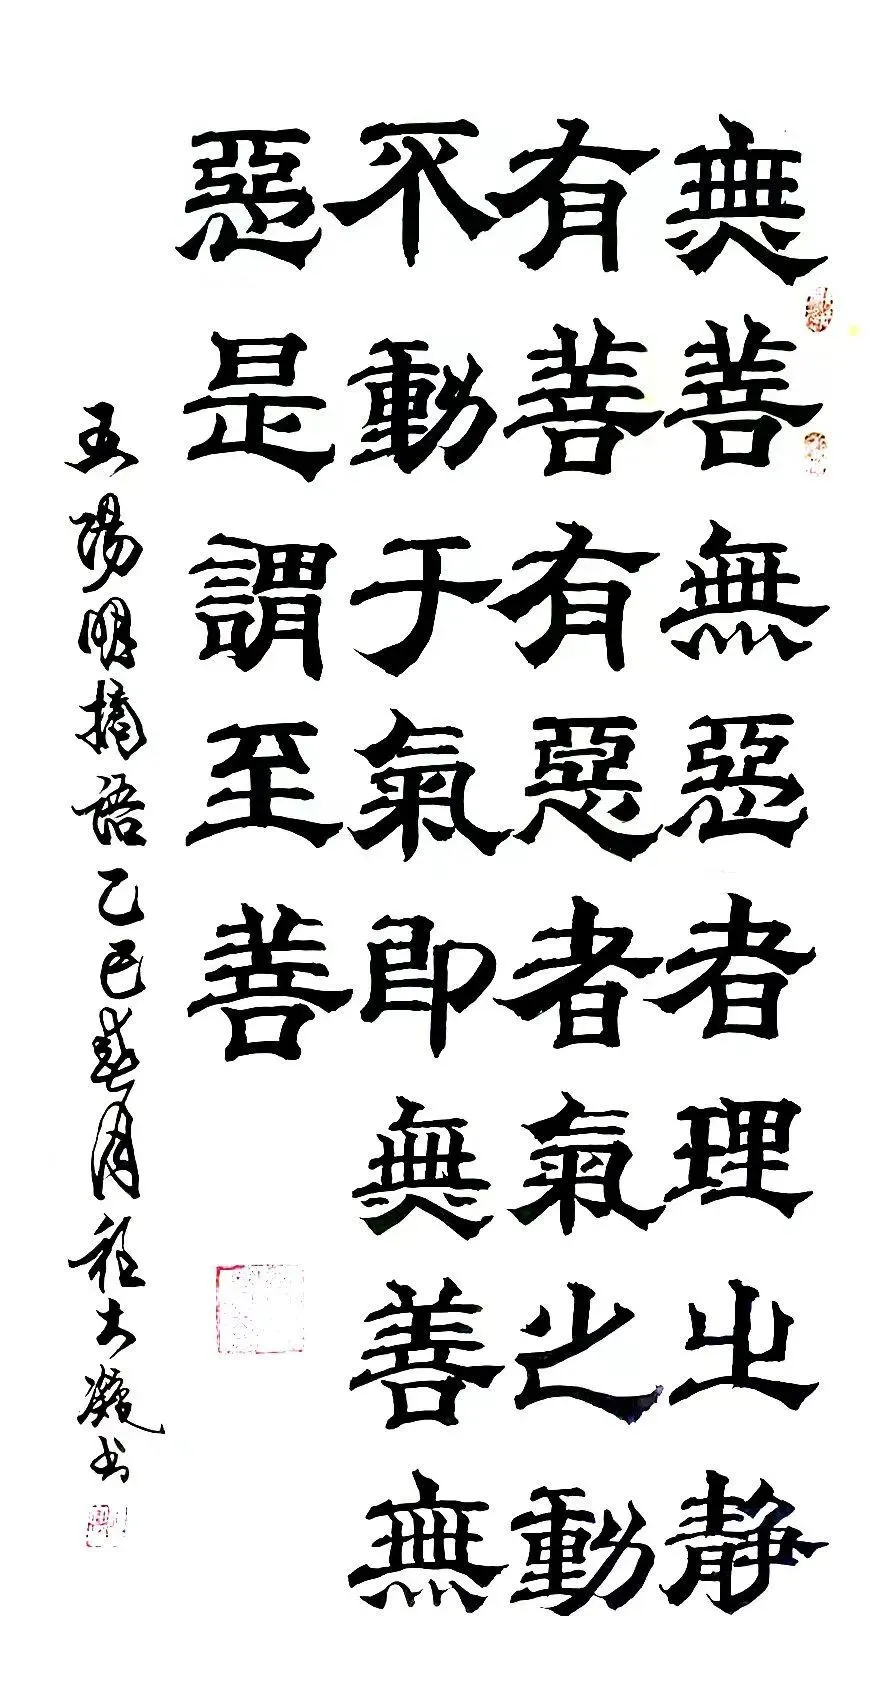 無善無惡者理之静
有善有惡者氣之動
不動于氣即無善無
惡是謂至善
王陽明摘語乙巳春月程大凝书